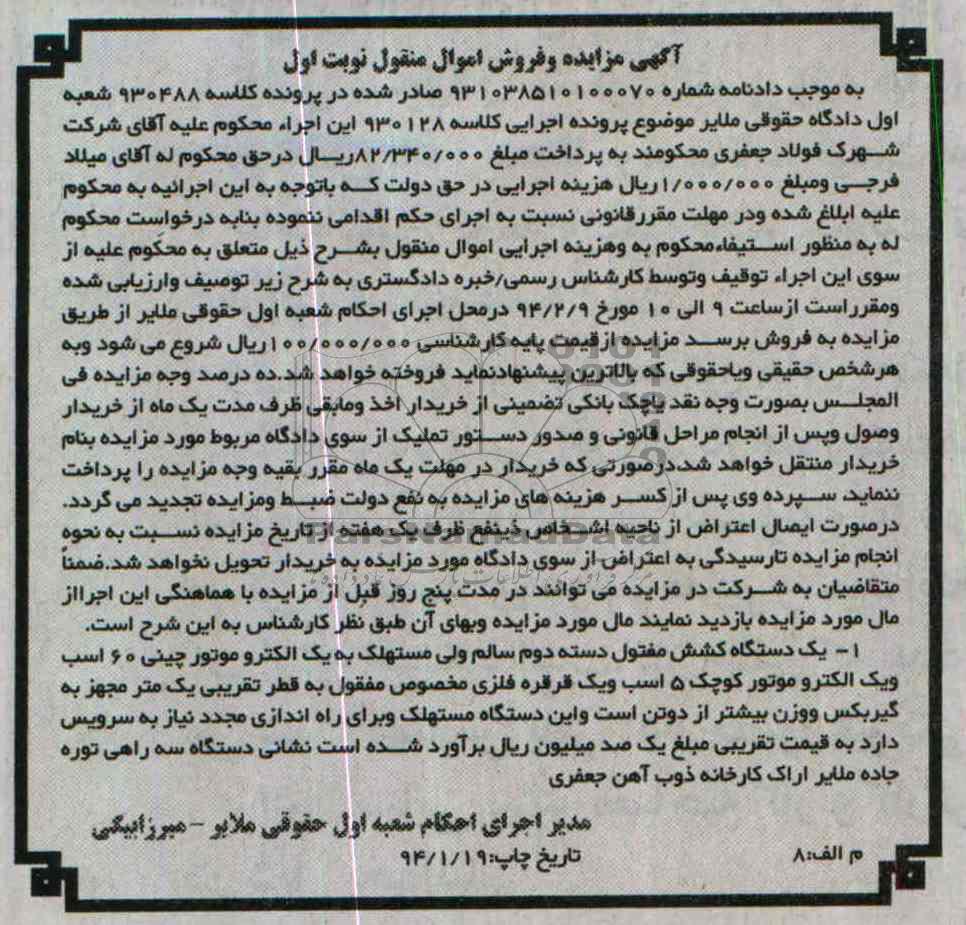 آگهی مزایده وفروش اموال منقول نوبت اول
به موجب دادنامه شماره ۹۳۱۰۳۸۵۱۰۱۰۰۰۷۰ صادر شده در پرونده کلاسه ۹۳۰۴۸۸ شعبه
اول دادگاه حقوقی ملایر موضوع پرونده اجرایی کلاسه ۹۳۰۱۲۸ این اجراء محکوم علیه آقای شرکت
شهرک فولاد جعفری محکومند به پرداخت مبلغ ۸۲/۳۴۰/۰۰۰ریال درحق محکوم له آقای میلاد
فرجی ومبلغ ۱/۰۰۰/۰۰۰ریال هزینه اجرایی در حق دولت که باتوجه به این اجرائیه به محکوم
علیه ابلاغ شده ودر مهلت مقررقانونی نسبت به اجرای حکم اقدامی ننموده بنابه درخواست محکوم
له به منظور استیفاءمحکوم به وهزینه اجرایی اموال منقول بشرح ذیل متعلق به محکوم علیه از
سوی این اجراء توقیف وتوسط کارشناس رسمی/خبره دادگستری به شرح زیر توصیف وارزیابی شده
ومقرراست ازساعت ۹ الی ۱۰ مورخ ۹۴/۲/۹ درمحل اجرای احکام شعبه اول حقوقی ملایر از طریق
مزایده به فروش برسد مزایده ازقیمت پایه کارشناسی ۱۰۰/۰۰۰/۰۰۰ریال شروع می شود وبه
هرشخص حقیقی ویاحقوقی که بالاترین پیشنهادنماید فروخته خواهد شد.ده درصد وجه مزایده فی
المجلس بصورت وجه نقد یاچک بانکی تضمینی از خریدار اخذ ومابقی ظرف مدت یک ماه از خریدار
وصول وپس از انجام مراحل قانونی و صدور دستور تملیک از سوی دادگاه مربوط مورد مزایده بنام
خریدار منتقل خواهد شد.درصورتی که خریدار در مهلت یک ماه مقرر بقیه وجه مزایده را پرداخت
ننماید، سپرده وی پس از کسر هزینه های مزایده به نفع دولت ضبط ومزایده تجدید می گردد.
درصورت ایصال اعتراض از ناحیه اشخاص ذینفع ظرف یک هفته از تاریخ مزایده نسبت به نحوه
انجام مزایده تارسیدگی به اعتراض از سوی دادگاه مورد مزایده به خریدار تحویل نخواهد شد.ضمناً
متقاضیان به شرکت در مزایده می توانند در مدت پنج روز قبل از مزایده با هماهنگی این اجرااز
مال مورد مزایده بازدید نمایند مال مورد مزایده وبهای آن طبق نظر کارشناس به این شرح است.
۱- یک دستگاه کشش مفتول دسته دوم سالم ولی مستهلک به یک الکترو موتور چینی ۶۰ اسب
ویک الکترو موتور کوچک ۵ اسب ویک قرقره فلزی مخصوص مفقول به قطر تقریبی یک متر مجهز به
گیربکس ووزن بیشتر از دوتن است واین دستگاه مستهلک وبرای راه اندازی مجدد نیاز به سرویس
دارد به قیمت تقریبی مبلغ یک صد میلیون ریال برآورد شده است نشانی دستگاه سه راهی توره
جاده ملایر اراک کارخانه ذوب آهن جعفری
مدیر اجرای احکام شعبه اول حقوقی ملایر – میرزابیگی
م الف:۸ تاریخ چاپ:۹۴/۱/۱۹
ParsNamadData